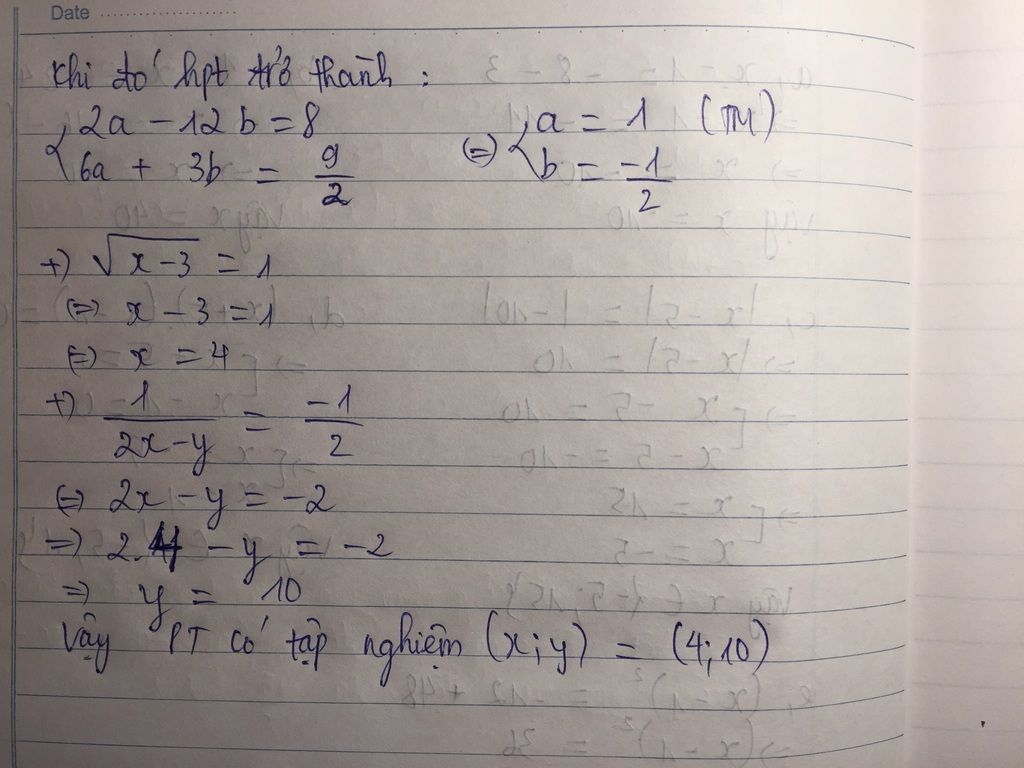 Date
Khi đó hpt trở thành :
{ 2a - 12b = 8
6a + 3b = 9/2
(=) { a = 1 (TM)
b = -1/2
+) √x-3 = 1
(=) x - 3 = 1
(=) x = 4
+) 1/2x-y = -1/2
(=) 2x - y = -2
=) 2.4 - y = -2
=) y = 10
Vậy PT có tập nghiệm (x;y) = (4;10)